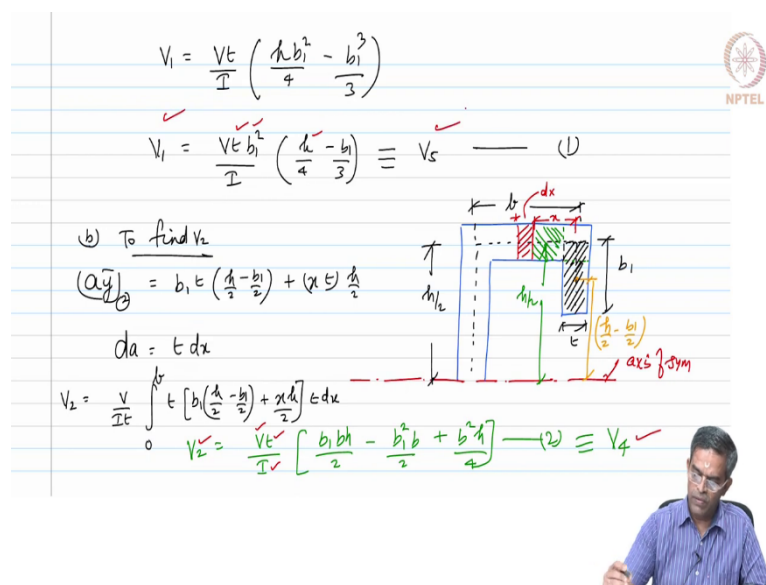 V₁ = Vt/I (hb₁²/4 - b₁³/3)
NPTEL
V₁ = Vtb₁²/I (h/4 - b₁/3) ≡ V₅ —— (1)
(b) To find V₂
(aȳ)₂ = b₁t (h/2 - b₁/2) + (xt) h/2
da = t dx
V₂ = V/It ∫₀ᵇ t [b₁(h/2 - b₁/2) + xh/2] t dx
V₂ = Vt/I [b₁bh/2 - b₁²b/2 + b²h/4] —(2) ≡ V₄
dx
b
x
h/2
h/2
b₁
t
(h/2 - b₁/2)
axis of sym